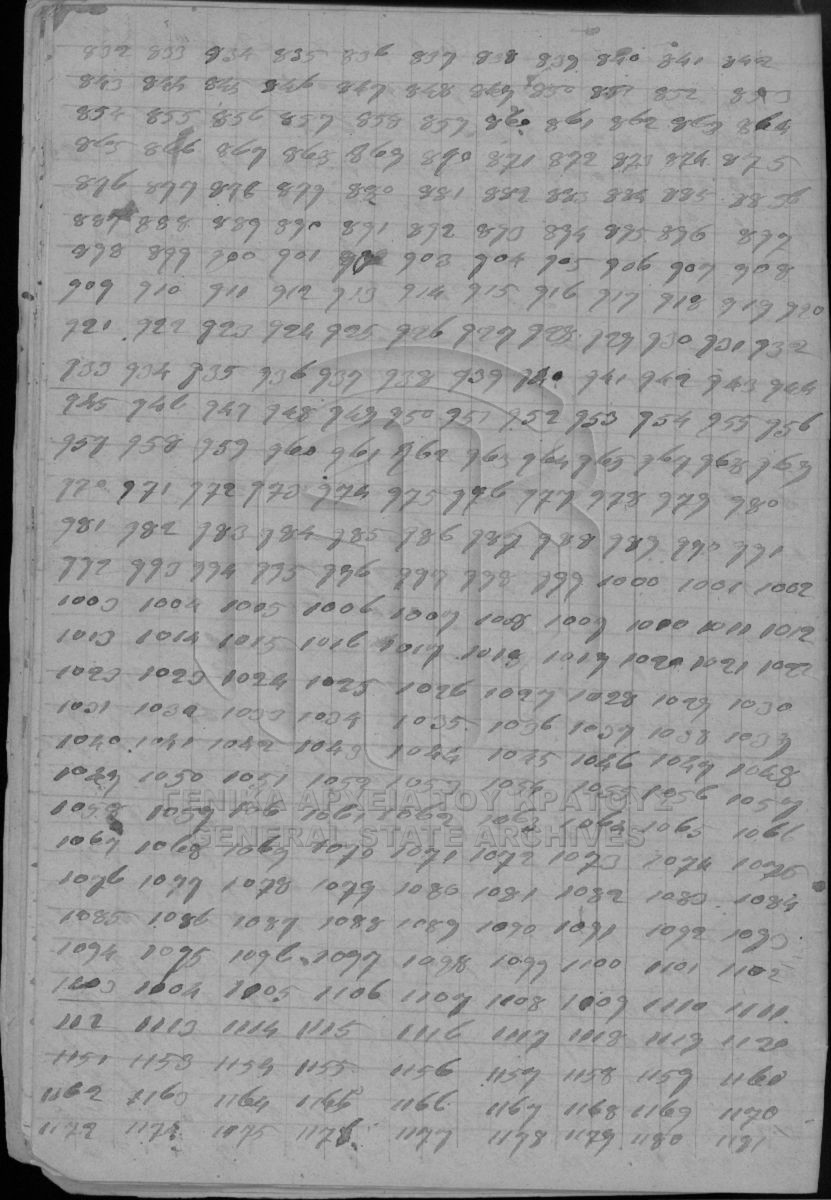 832 833 834 835 836 837 838 839 840 841 842
843 844 845 846 847 848 849 850 851 852 853
854 855 856 857 858 859 860 861 862 863 864
865 866 867 868 869 870 871 872 873 874 875
876 877 878 879 880 881 882 883 884 885 886
887 888 889 890 891 892 893 894 895 896 897
898 899 900 901 902 903 904 905 906 907 908
909 910 911 912 913 914 915 916 917 918 919 920
921 922 923 924 925 926 927 928 929 930 931 932
933 934 935 936 937 938 939 940 941 942 943 944
945 946 947 948 949 950 951 952 953 954 955 956
957 958 959 960 961 962 963 964 965 967 968 969
970 971 972 973 974 975 976 977 978 979 980
981 982 983 984 985 986 987 988 989 990 991
992 993 994 995 996 997 998 999 1000 1001 1002
1003 1004 1005 1006 1007 1008 1009 1010 1011 1012
1013 1014 1015 1016 1017 1018 1019 1020 1021 1022
1023 1023 1024 1025 1026 1027 1028 1029 1030
1031 1032 1033 1034 1035 1036 1037 1038 1039
1040 1041 1042 1043 1044 1045 1046 1047 1048
1049 1050 1051 1052 1053 1054 1055 1056 1057
ΓΕΝΙΚΑ ΑΡΧΕΙΑ ΤΟΥ ΚΡΑΤΟΥΣ
1058 1059 106 1061 1062 1063 1064 1065 1066
GENERAL STATE ARCHIVES
1067 1068 1069 1070 1071 1072 1073 1074 1075
1076 1077 1078 1079 1080 1081 1082 1083 1084
1085 1086 1087 1088 1089 1090 1091 1092 1093
1094 1095 1096 1097 1098 1099 1100 1101 1102
1103 1004 1005 1106 1107 1108 1109 1110 1111
112 1113 1114 1115 1116 1117 1118 1119 1120
1151 1153 1154 1155 1156 1157 1158 1159 1160
1162 1163 1164 1165 1166 1167 1168 1169 1170
1172 1174 1175 1176 1177 1178 1179 1180 1181